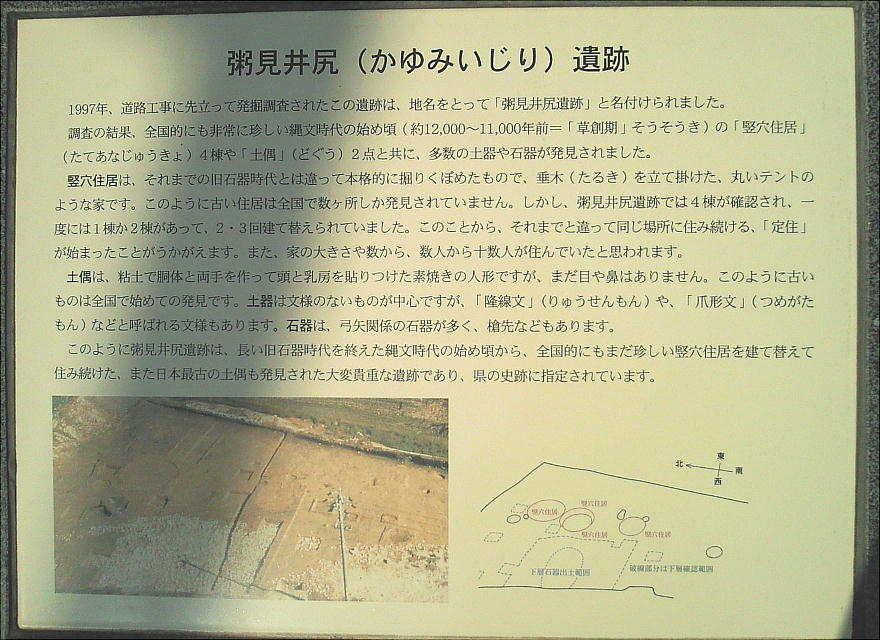 粥見井尻（かゆみいじり）遺跡
1997年、道路工事に先立って発掘調査されたこの遺跡は、地名をとって「粥見井尻遺跡」と名付けられました。
調査の結果、全国的にも非常に珍しい縄文時代の始め頃（約12,000～11,000年前＝「草創期」そうそうき）の「竪穴住居」
（たてあなじゅうきょ）４棟や「土偶」（どぐう）２点と共に、多数の土器や石器が発見されました。
竪穴住居は、それまでの旧石器時代とは違って本格的に掘りくぼめたもので、垂木（たるき）を立て掛けた、丸いテントの
ような家です。このように古い住居は全国で数ヶ所しか発見されていません。しかし、粥見井尻遺跡では４棟が確認され、一
度には１棟か２棟があって、２・３回建て替えられていました。このことから、それまでと違って同じ場所に住み続ける、「定住」
が始まったことがうかがえます。また、家の大きさや数から、数人から十数人が住んでいたと思われます。
土偶は、粘土で胴体と両手を作って頭と乳房を貼りつけた素焼きの人形ですが、まだ目や鼻はありません。このように古い
ものは全国で始めての発見です。土器は文様のないものが中心ですが、「隆線文」（りゅうせんもん）や、「爪形文」（つめがた
もん）などと呼ばれる文様もあります。石器は、弓矢関係の石器が多く、槍先などもあります。
このように粥見井尻遺跡は、長い旧石器時代を終えた縄文時代の始め頃から、全国的にもまだ珍しい竪穴住居を建て替えて
住み続けた、また日本最古の土偶も発見された大変貴重な遺跡であり、県の史跡に指定されています。
東
北
南
西
竪穴住居
竪穴住居
竪穴住居
竪穴住居
下層石器出土範囲
破線部分は下層確認範囲